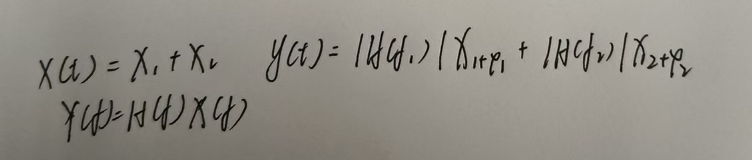 X(t) = X₁ + X₂ y(t) = |H(f₁)| X₁₊φ₁ + |H(f₂)| X₂₊φ₂
Y(f) = H(f) X(f)